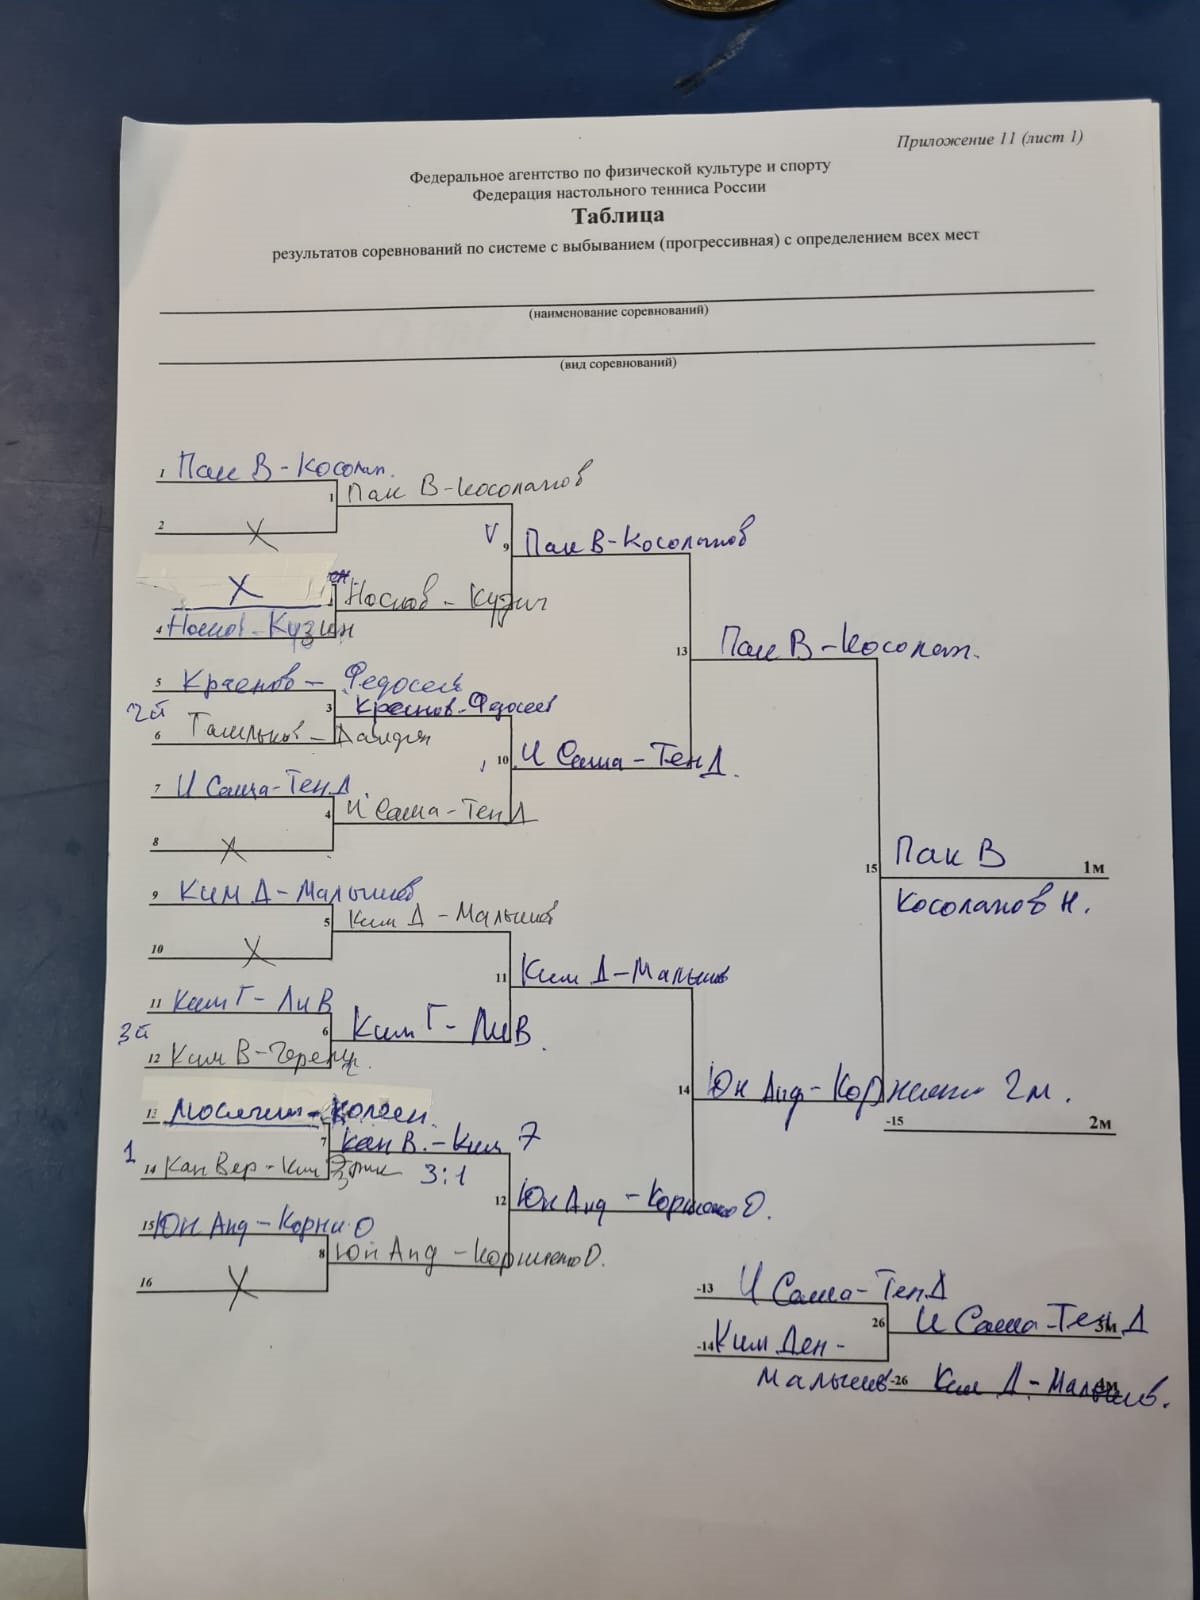 Приложение 11 (лист 1)
Федеральное агентство по физической культуре и спорту
Федерация настольного тенниса России
Таблица
результатов соревнований по системе с выбыванием (прогрессивная) с определением всех мест
(наименование соревнований)
(вид соревнований)
1 Пак В - Косолап.
1 Пак В - Косолапов
2 X
V
9 Пак В - Косолапов
X
2 Носков - Кузин
4 Носков - Кузин
13 Пак В - Косолап.
5 Краснов - Федосеев
3 Краснов - Федосеев
2й
6
10 И Саша - Тен Д.
7 И Саша - Тен Д.
4 И Саша - Тен Д
8 X
15 Пак В 1м
Косолапов Н.
9 Ким Д - Малышев
5 Ким Д - Малышев
10 X
11 Ким Д - Малышев
11 Ким Г - Ли В
6 Ким Г - Ли В.
3й
12 Ким В -
14 Юн Анд - Корниенко 2м.
-15 2м
13
7 Кан В. - Ким Э
1
14 Кан Вер - Ким Эрик 3:1
12 Юн Анд - Корниенко О.
15 Юн Анд - Корни О
8 Юн Анд - Корниенко О.
16 X
-13 И Саша - Тен Д
26 И Саша - Тен Д 3м
-14 Ким Ден -
Малышев
-26 Ким Д - Малышев. 4м